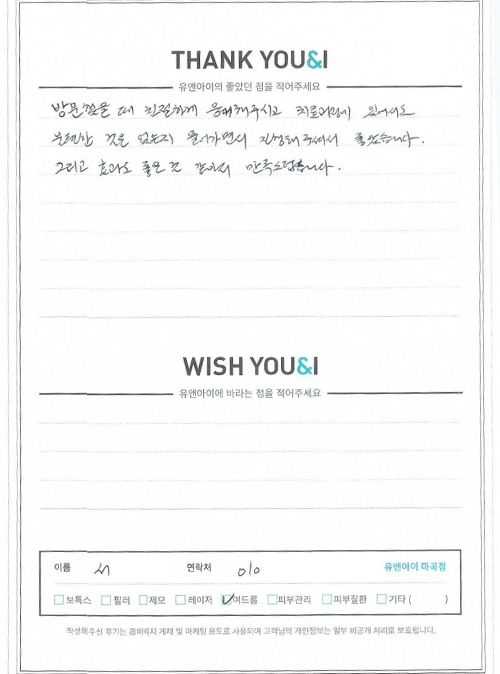 THANK YOU&I
유앤아이의 좋았던 점을 적어주세요
방문했을 때 친절하게 응대해주시고 치료과정에 있어서도
불편한 것은 없는지 물어가면서 진행해주셔서 좋았습니다.
그리고 효과도 좋은 것 같아서 만족스럽습니다.
WISH YOU&I
유앤아이에 바라는 점을 적어주세요
이름 서 연락처 010 유앤아이 마곡점
보톡스 필러 제모 레이저 여드름 피부관리 피부질환 기타 ( )
작성해주신 후기는 홈페이지 게재 및 마케팅 용도로 사용되며 고객님의 개인정보는 일부 비공개 처리로 보호됩니다.